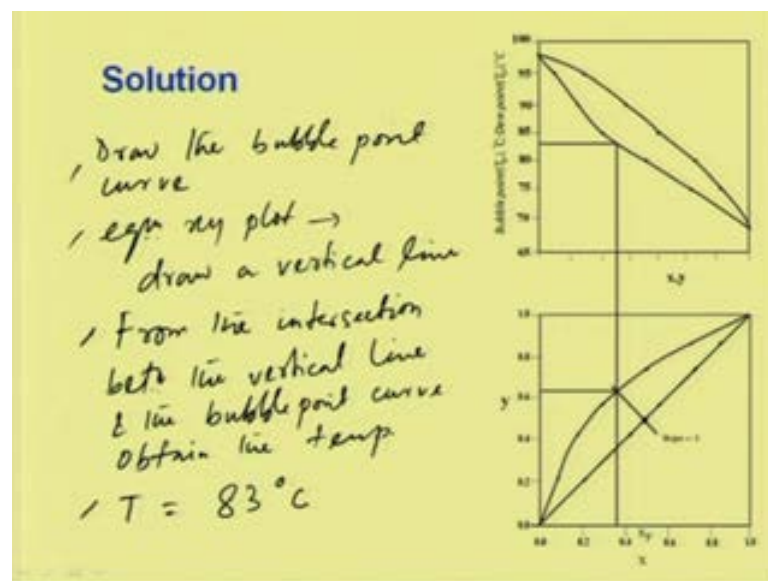 Solution
Draw the bubble point
curve
eqm xy plot →
draw a vertical line
From the intersection
betn the vertical line
& the bubble point curve
obtain the temp
T = 83°C
Bubble point(), °C Dew point(), °C
100
95
90
85
80
75
70
65
x,y
1.0
0.8
0.6
0.4
0.2
0.0
y
0.0 0.2 0.4 0.6 0.8 1.0
x